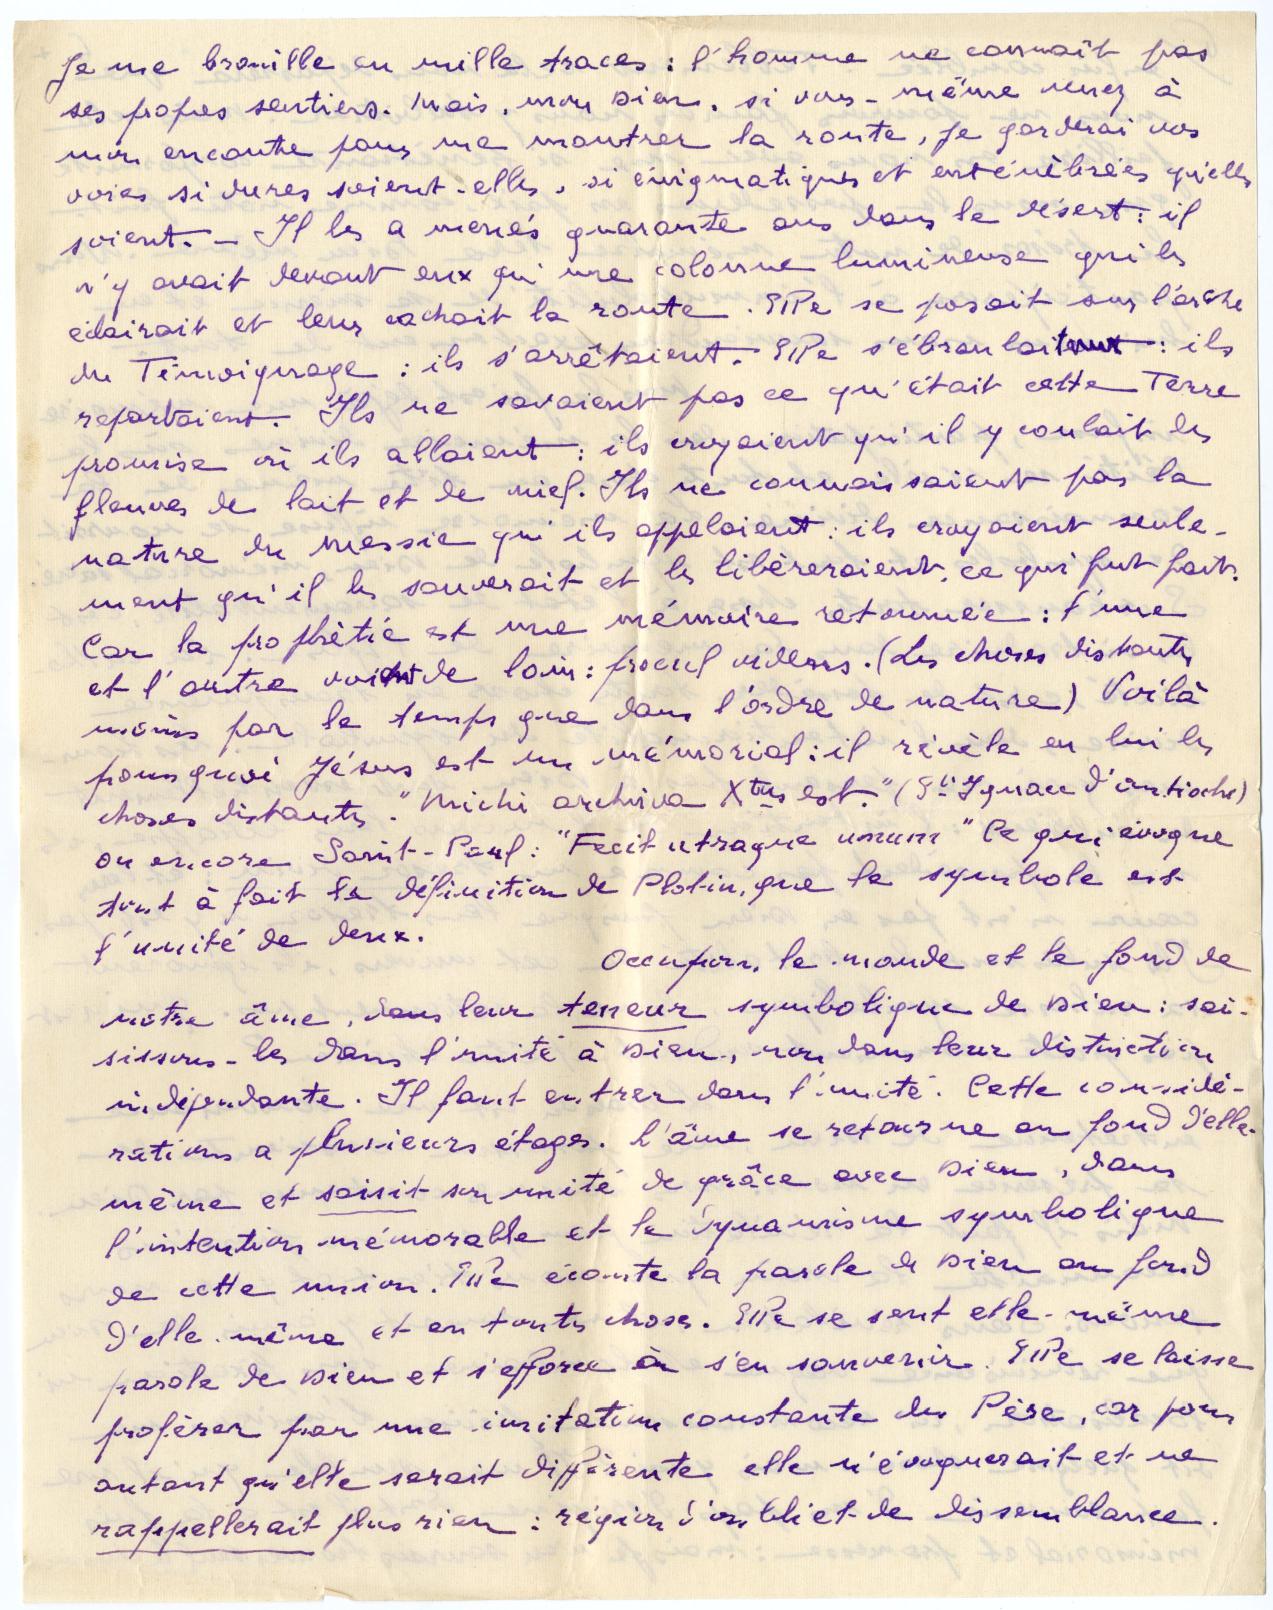 Je me brouille en mille traces : l'homme ne connaît pas
ses propres sentiers. Mais, mon Dieu, si vous-même venez à
mon encontre pour me montrer la route, je garderai vos
voies si dures soient-elles, si énigmatiques et enténébrées qu'elles
soient. – Il les a menés quarante ans dans le désert : il
n'y avait devant eux qu'une colonne lumineuse qui les
éclairait et leur cachait la route. Elle se posait sur l'arche
du Témoignage : ils s'arrêtaient. Elle s'ébranlait : ils
repartaient. Ils ne savaient pas ce qu'était cette Terre
promise où ils allaient : ils croyaient qu'il y coulait des
fleuves de lait et de miel. Ils ne connaissaient pas la
nature du Messie qu'ils appelaient : ils croyaient seule-
ment qu'il les sauverait et les libèreraient, ce qui fut fait.
Car la prophétie est une mémoire retournée : l'une
et l'autre voient de loin : procul videns. (Les choses distantes
moins par le temps que dans l'ordre de nature) Voilà
pourquoi Jésus est un mémorial : il révèle en lui les
choses distantes. "Michi archiva Xtus est." (St Ignace d'Antioche)
ou encore Saint-Paul : "Fecit utraque unum" Ce qui évoque
tout à fait la définition de Plotin, que le symbole est
l'unité de deux.
Occupons le monde et le fond de
notre âme, dans leur teneur symbolique de Dieu : sai-
sissons-les dans l'unité à Dieu, non dans leur distinction
indépendante. Il faut entrer dans l'unité. Cette considé-
rations a plusieurs étages. L'âme se retourne au fond d'elle-
même et saisit son unité de grâce avec Dieu, dans
l'intention mémorable et le dynamisme symbolique
de cette union. Elle écoute la parole de Dieu au fond
d'elle-même et en toutes choses. Elle se sent elle-même
parole de Dieu et s'efforce à s'en souvenir. Elle se laisse
proférer par une imitation constante du Père, car pour
autant qu'elle serait différente elle n'évoquerait et ne
rappellerait plus rien : région d'oubli et de dissemblance.